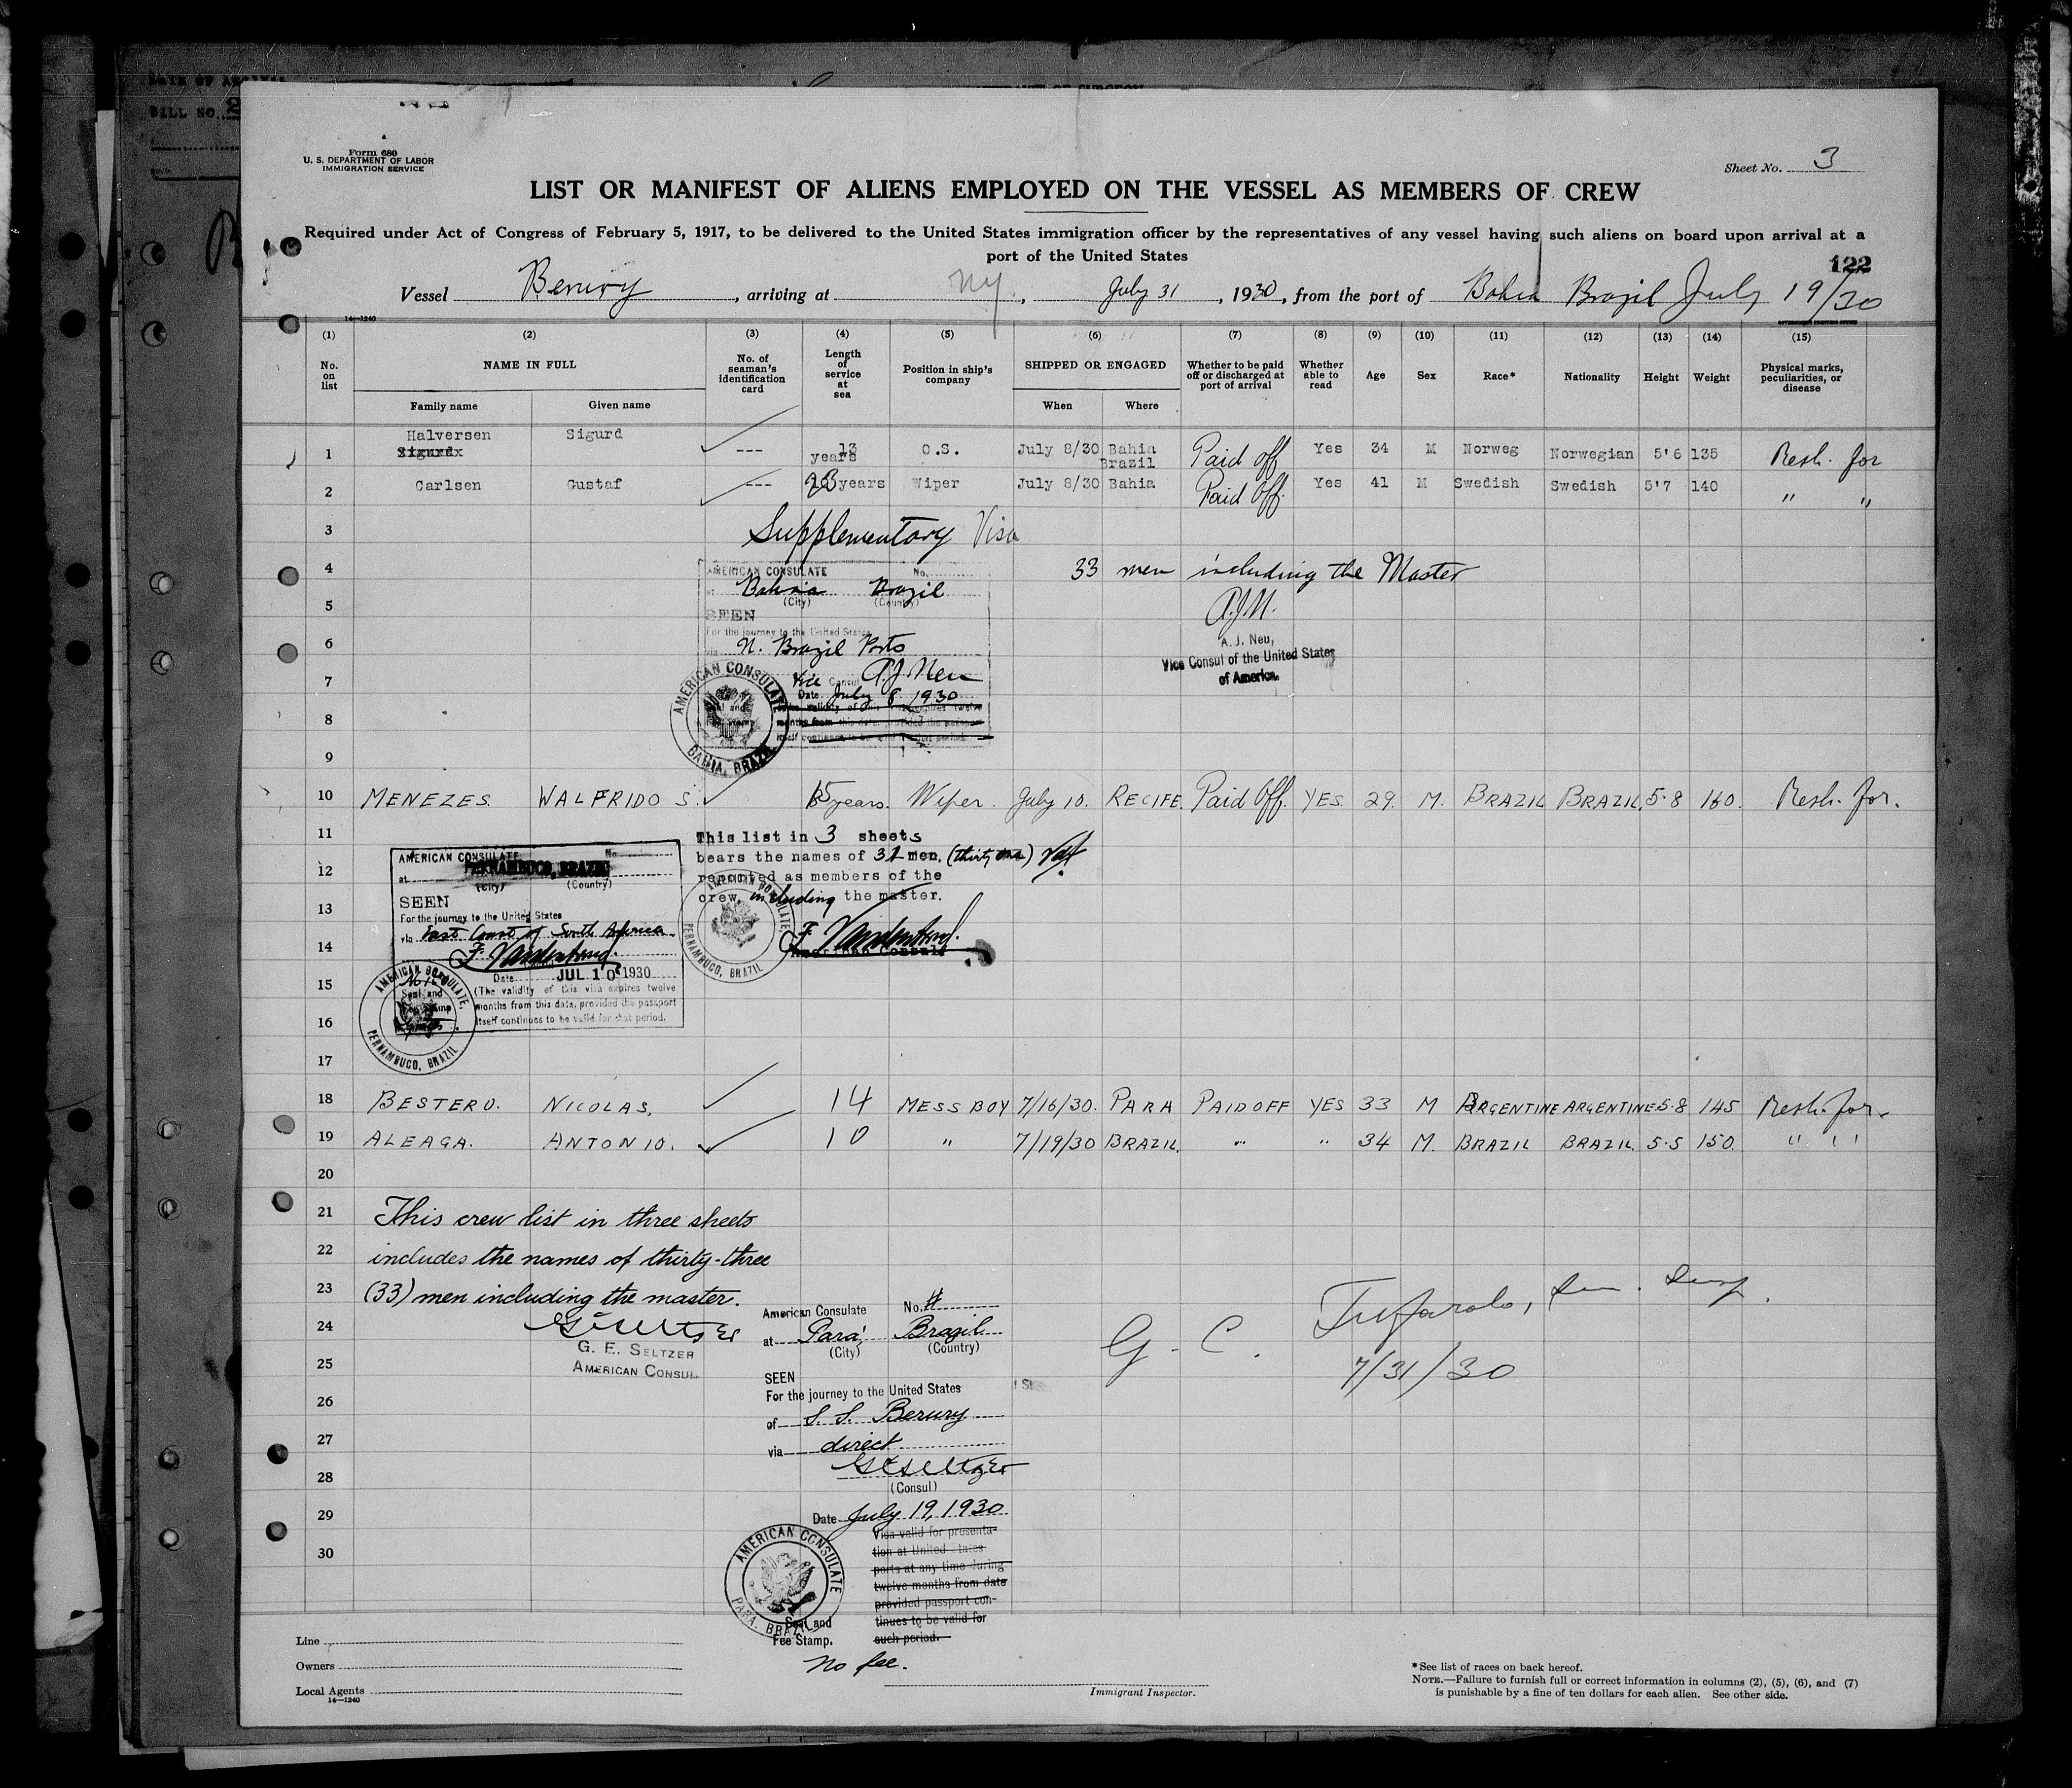 BILL NO. 2
Form 680
U. S. DEPARTMENT OF LABOR
IMMIGRATION SERVICE
Sheet No. 3
LIST OR MANIFEST OF ALIENS EMPLOYED ON THE VESSEL AS MEMBERS OF CREW
Required under Act of Congress of February 5, 1917, to be delivered to the United States immigration officer by the representatives of any vessel having such aliens on board upon arrival at a
port of the United States
122
Vessel Berury, arriving at NY., July 31, 1930, from the port of Bahia Brazil July 19/30
14—1240
(1) (2) (3) (4) (5) (6) (7) (8) (9) (10) (11) (12) (13) (14) (15)
No. on list NAME IN FULL No. of seaman's identification card Length of service at sea Position in ship's company SHIPPED OR ENGAGED Whether to be paid off or discharged at port of arrival Whether able to read Age Sex Race* Nationality Height Weight Physical marks, peculiarities, or disease
Family name Given name When Where
Halversen Sigurd
1 Sigurdx --- 13 years O.S. July 8/30 Bahia Brazil Paid off Yes 34 M Norweg Norwegian 5'6 135 Resh. for
2 Carlsen Gustaf --- 23 years Wiper July 8/30 Bahia Paid Off. Yes 41 M Swedish Swedish 5'7 140 " "
3 Supplementary Visa
4 33 men including the Master
AMERICAN CONSULATE No.
at Bahia Brazil
(City) (Country)
5 A.J.N.
SEEN
For the journey to the United States
6 via N. Brazil Ports
A. J. Neu,
Vice Consul of the United States
of America.
7 Vice Consul A.J. Neu
Date July 8, 1930
AMERICAN CONSULATE
BAHIA, BRAZIL
8
9
10 MENEZES. WALFRIDO S. 15 years. Wiper. July 10. RECIFE. Paid Off. YES. 29. M. BRAZIL BRAZIL. 5-8 160. Resh. for.
11 This list in 3 sheets
12 bears the names of 31 men, (thirty one)
reported as members of the
crew, including the master.
13
AMERICAN CONSULATE No.
at PERNAMBUCO, BRAZIL
(City) (Country)
SEEN
For the journey to the United States
via East Coast of South America
14 American Consul
Date JUL 10 1930
15 (The validity of this visa expires twelve
months from this date, provided the passport
16 itself continues to be valid for that period.
AMERICAN CONSULATE,
PERNAMBUCO, BRAZIL
Seal and
AMERICAN CONSULATE,
PERNAMBUCO, BRAZIL
17
18 BESTERO. NICOLAS, 14 MESS BOY 7/16/30. PARA PAID OFF YES 33 M ARGENTINE ARGENTINE 5-8 145 Resh. for.
19 ALEAGA. ANTONIO. 10 " 7/19/30 BRAZIL. " " 34 M. BRAZIL BRAZIL. 5-5 150. " "
20
21 This crew list in three sheets
22 includes the names of thirty-three
23 (33) men including the master.
24 GESeltzer
G. E. SELTZER
25 AMERICAN CONSUL
American Consulate No. 4
at Pará, Brazil
(City) (Country)
G. C. Tuffarolo, Imm. Insp.
7/31/30
SEEN
For the journey to the United States
26 of S. S. Berury
27 via direct
28 GESeltzer
(Consul)
29 Date July 19, 1930
30 Visa valid for presenta-
tion at United States
ports at any time during
twelve months from date
provided passport con-
tinues to be valid for
such period.
AMERICAN CONSULATE
PARA, BRAZIL
Seal and
Fee Stamp.
No fee.
Line
Owners
Local Agents
14—1240
Immigrant Inspector.
* See list of races on back hereof.
NOTE.—Failure to furnish full or correct information in columns (2), (5), (6), and (7)
is punishable by a fine of ten dollars for each alien. See other side.